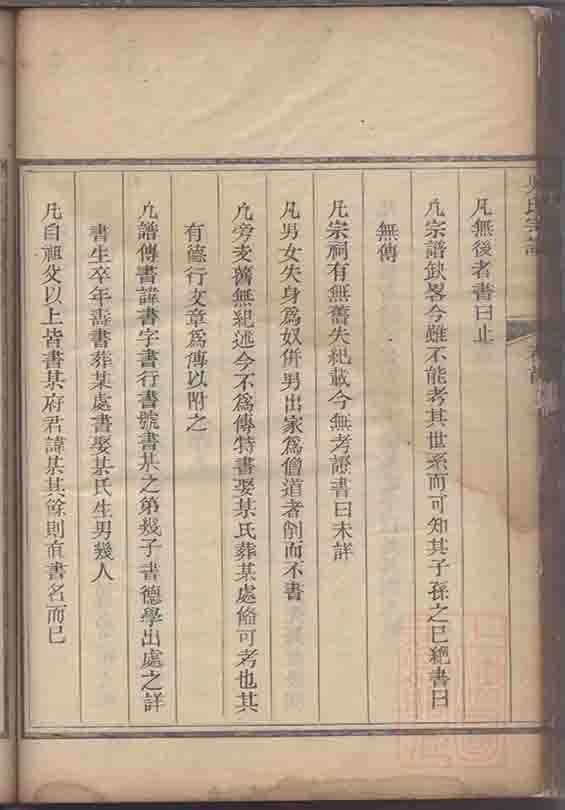 氏宗譜
凡無後者書曰止
凡宗譜缺畧今雖不能考其世系而可知其子孫之已絕書曰
無傳
凡宗祠有無舊失紀載今無考證書曰未詳
凡男女失身爲奴併男出家爲僧道者削而不書
凡旁支舊無紀述今不爲傳特書娶某氏葬某處俻可考也其
有德行文章爲傳以附之
凡譜傳書諱書字書行書號書某之第幾子書德學出處之詳
書生卒年壽書葬某處書娶某氏生男幾人
凡自祖父以上皆書某府君諱某其餘則直書名而已